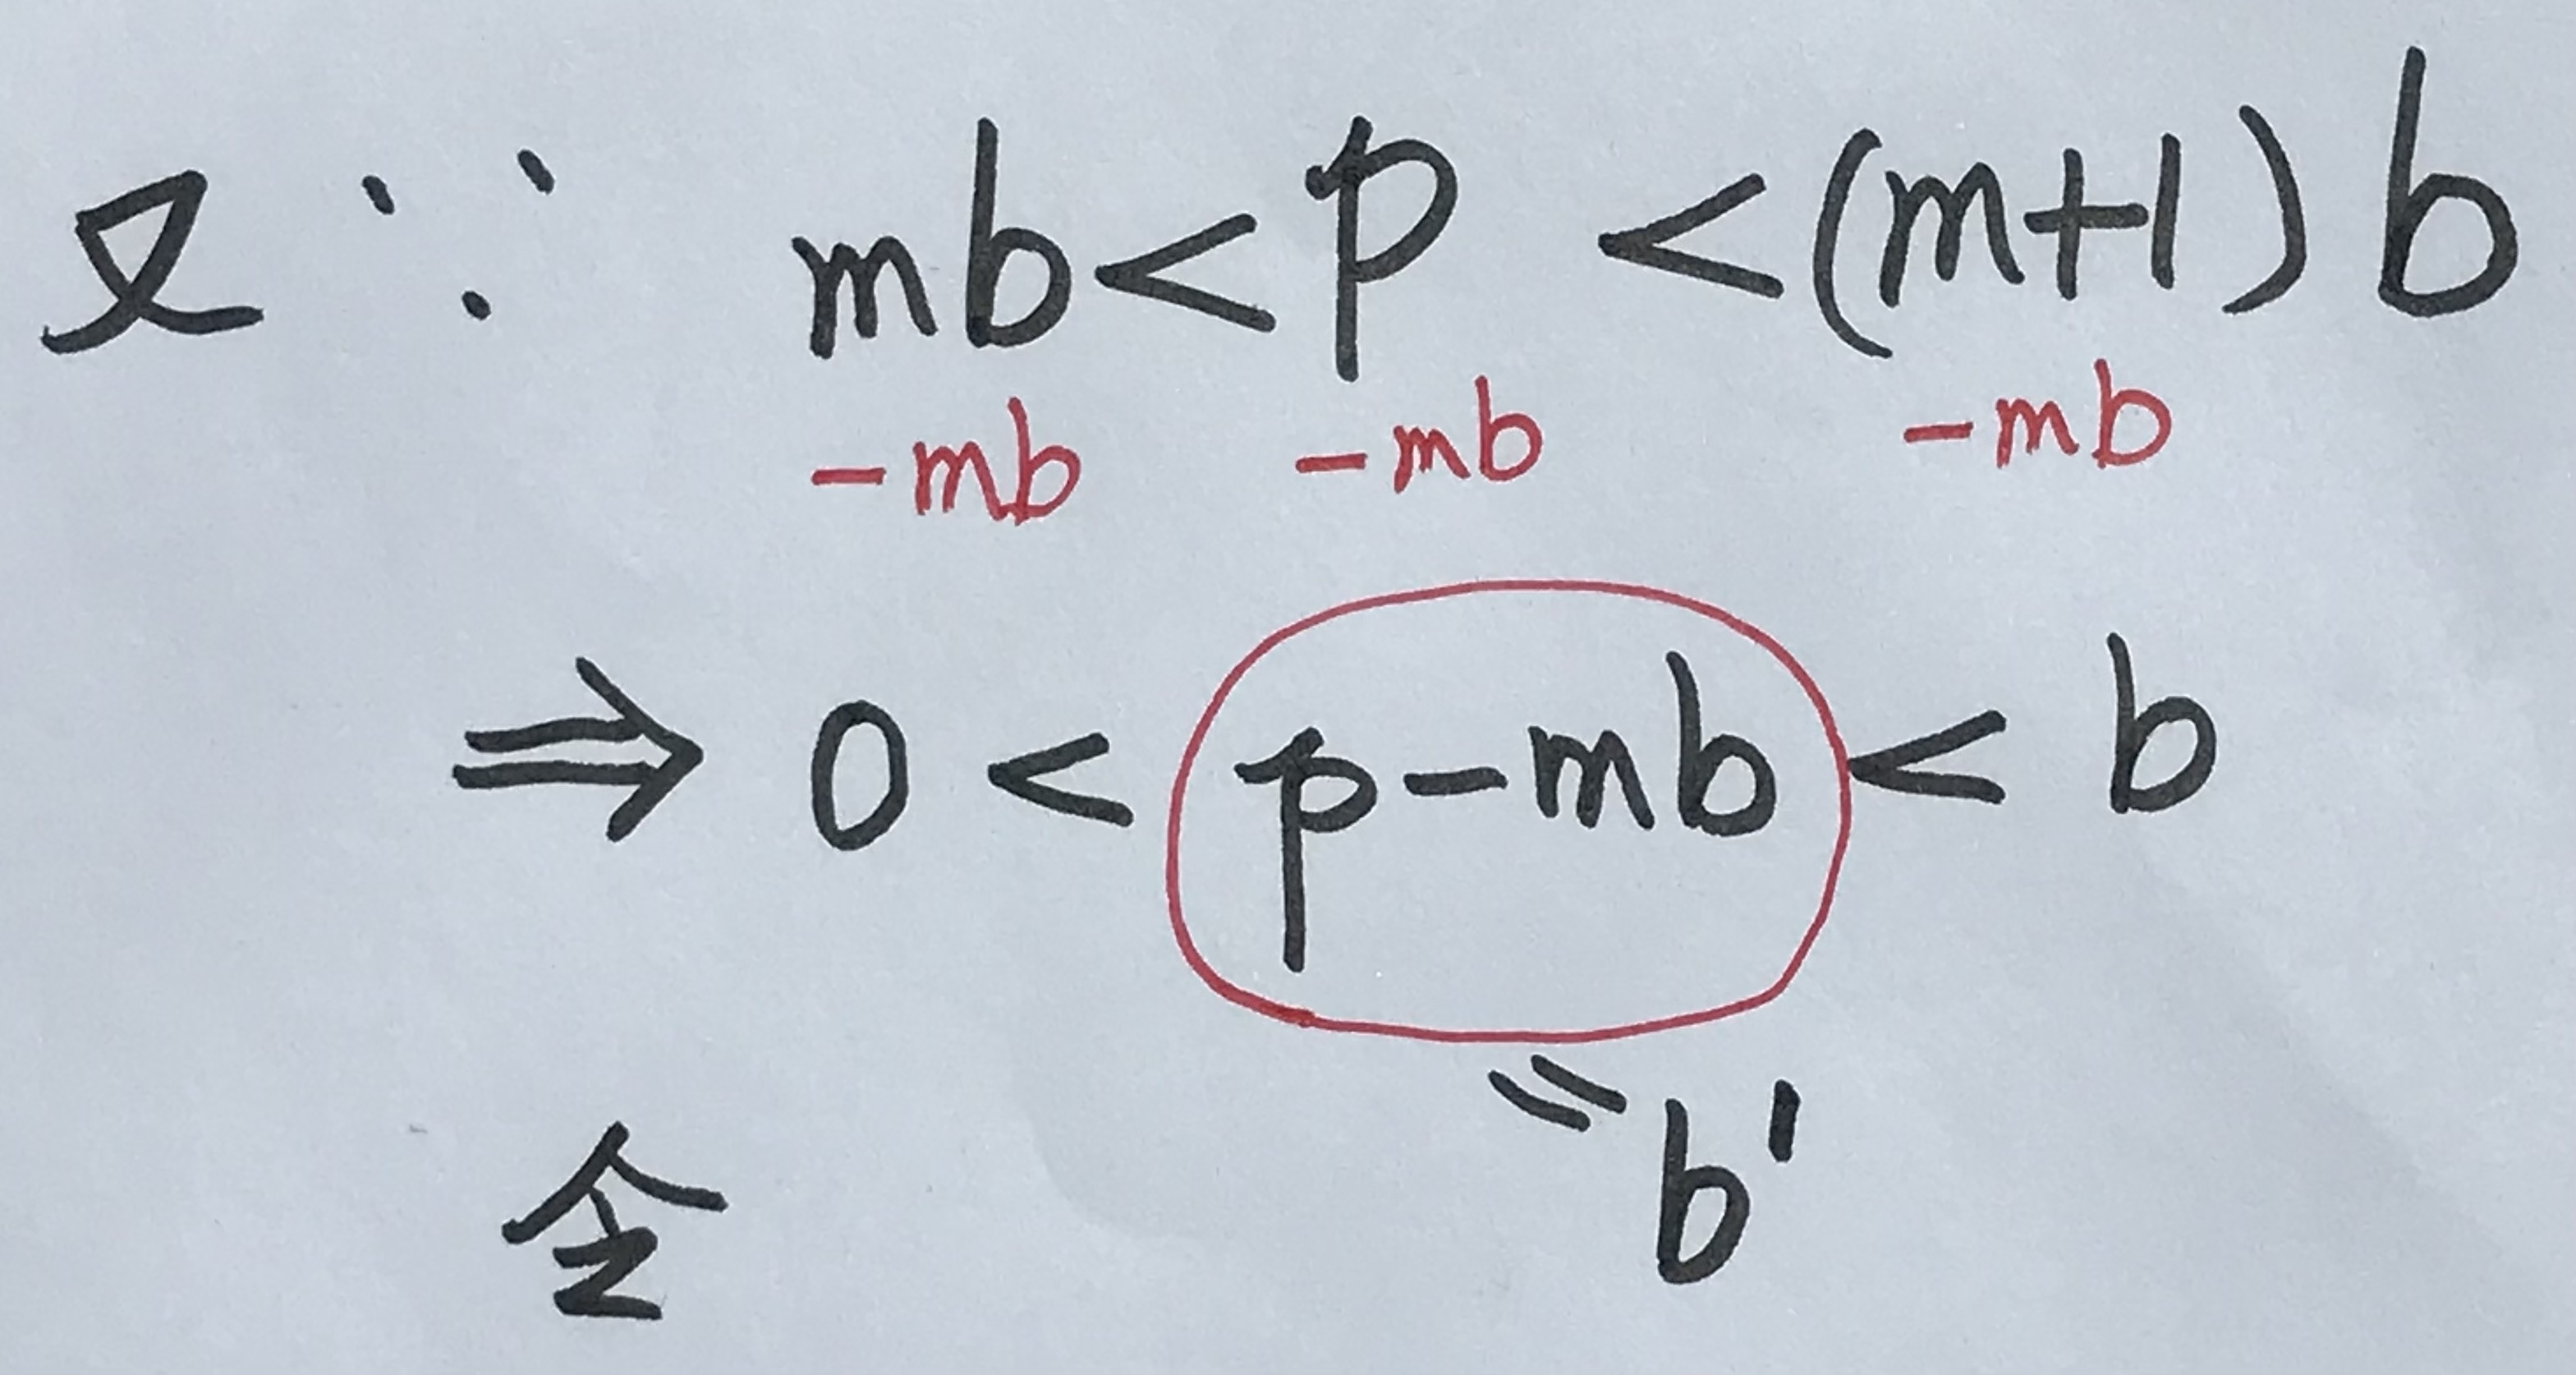 又 ∵ mb < p < (m+1) b
-mb -mb -mb
⇒ 0 < p-mb < b
= b'
令